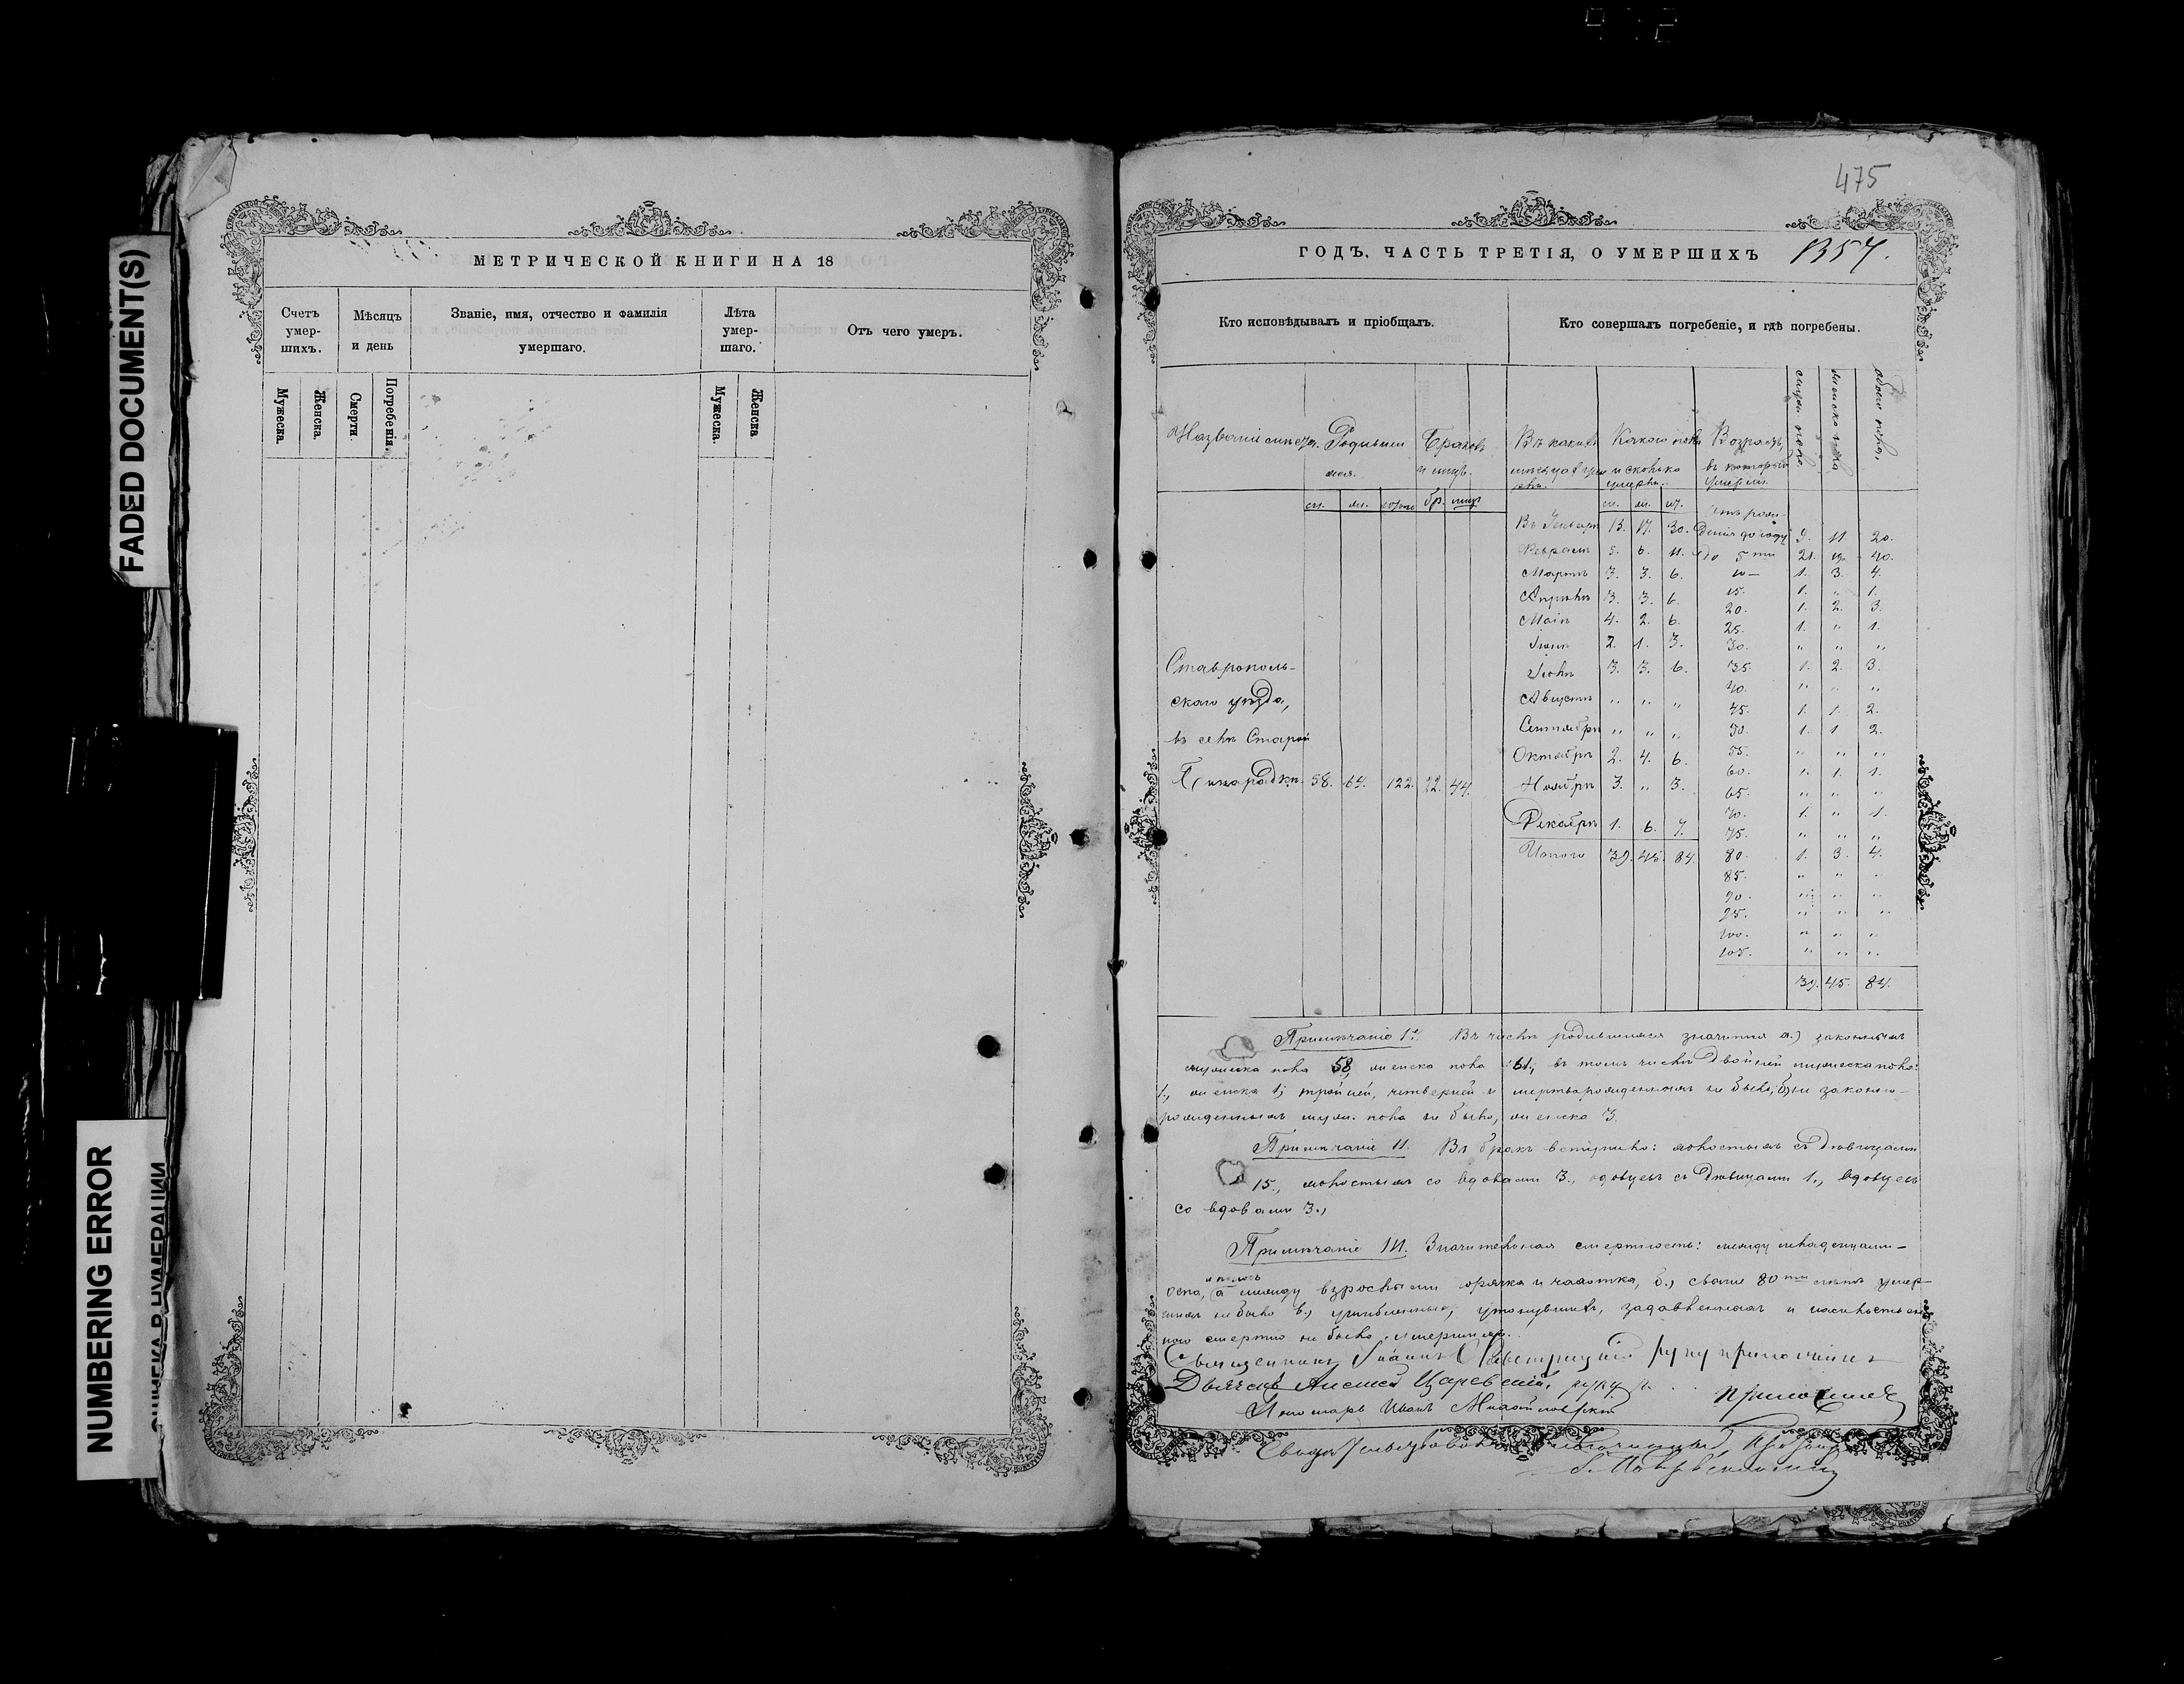 FADED DOCUMENT(S)
NUMBERING ERROR
МЕТРИЧЕСКОЙ КНИГИ НА 18
Счетъ умер-шихъ.
Мѣсяцъ и день
Званіе, имя, отчество и фамилія умершаго.
Лѣта умер-шаго.
Отъ чего умеръ.
Мужеска.
Женска.
Смерти.
Погребенія.
Мужеска.
Женска
475
ГОДЪ. ЧАСТЬ ТРЕТІЯ, О УМЕРШИХЪ
Кто исповѣдывалъ и пріобщалъ.
Кто совершалъ погребеніе, и гдѣ погребены.
Родивши
мся.
Браковъ
и лицъ.
Возрастъ,
въ который
умерли.
Въ Январѣ 13. 17. 30.
дения до году 9. 11. 20.
Февралѣ 5. 6. 11.
до 5 ти 21. 19. 40.
Мартѣ 3. 3. 6.
10 1. 3. 4.
Апрѣлѣ 3. 3. 6.
15. 1. " 1.
20. 1. 2. 3.
Маѣ 4. 2. 6.
25. 1. " 1.
Іюнѣ 2. 1. 3.
30. " " "
Іюлѣ 3. 3. 6.
35. 1. 2. 3.
Августѣ " " "
40. " " "
45. 1. 1. 2.
Сентябрѣ " " "
50. 1. 1 2.
Октябрѣ 2. 4. 6.
55. " " "
60. " 1. 1.
Ноябрѣ 3. " 3.
65. " " "
70. 1. " 1.
Декабрѣ 1. 6. 7.
75. " " "
Итого 39. 45. 84.
80. 1. 3. 4.
85. " " "
90. " " "
95. " " "
100. " " "
105. " " "
39. 45. 84.
Ставрополь-
скаго уѣзда,
въ селѣ Старой
Бинарадкѣ 58. 64. 122. 22. 44.
Примѣчаніе 1е. Въ числѣ родившихся значится а.) законныхъ
мужеска пола 58, женска пола 61, въ томъ числѣ двойней мужеска пола
1., женска 1; тройней, четверней и мертворожденныхъ не было; б) не законно-
рожденныхъ муж. пола не было, женска 3.
Примѣчаніе II. Въ бракъ вступило: холостыхъ съ дѣвицами
15., холостыхъ со вдовами 3., вдовцевъ съ дѣвицами 1., вдовцевъ
со вдовами 3.,
Примѣчаніе III. Значительная смертность: между младенцами-
оспа, а между взрослыми горячка и чахотка, б.) свыше 80 ти лѣтъ умер-
шихъ не было в.) утонувшихъ, задавленныхъ и насильствен
ною смертію не было умершихъ.
Священникъ Іоаннъ руку приложилъ
Дьячекъ Алексей Царевскій, руку приложилъ
Пономарь Иванъ